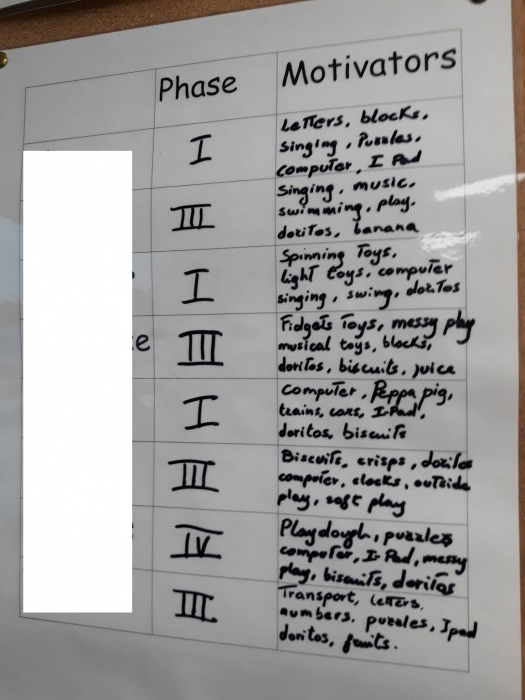 Phase Motivators
I
Letters, blocks,
singing, Puzzles,
computer, I Pad
III
Singing, music,
swimming, play,
doritos, banana
I
Spinning Toys,
light toys, computer
singing, swing, doritos
e
III
Fidgets Toys, messy play
musical toys, blocks,
doritos, biscuits, juice
I
Computer, Peppa pig,
trains, cars, I-Pad,
doritos, biscuits
III
Biscuits, crisps, doritos
computer, clocks, outside
play, soft play
IV
Playdough, puzzles
computer, I-Pad, messy
play, biscuits, doritos
III
Transport, letters,
numbers, puzzles, Ipad
doritos, fruits.